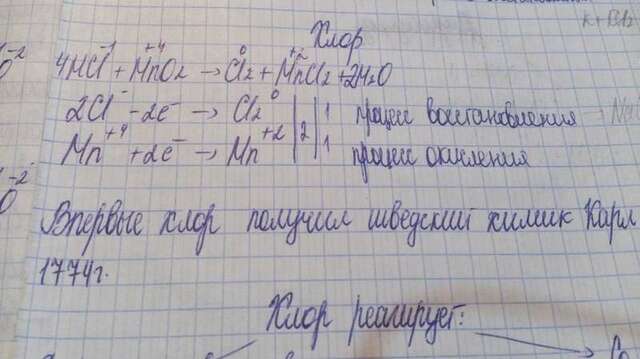 K+Br2
Хлор
-2
O
4HCl⁻¹ + Mn⁺⁴O2 → Cl2⁰ + Mn⁺²Cl2 + 2H2O
2Cl⁻ - 2e⁻ → Cl2⁰ | 2 | 1 процесс восстановления
Mn⁺⁴ + 2e⁻ → Mn⁺² | 1 процесс окисления
-2
O
Впервые хлор получил шведский химик Карл
1774г.
Хлор реагирует: